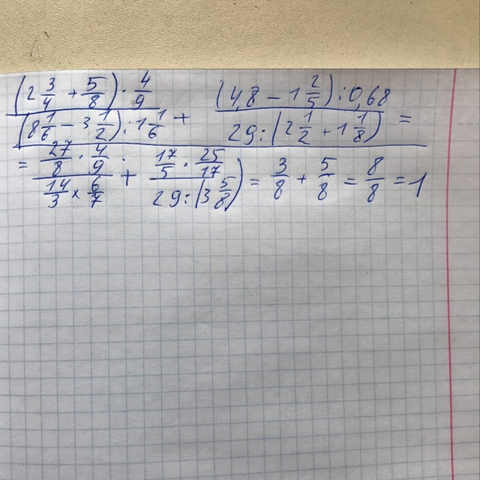 ((2 3/4 + 5/8) · 4/9) / ((8 1/6 − 3 1/2) : 1 1/6) + ((4,8 − 1 2/5) : 0,68) / (29 : (2 1/2 + 1 1/8)) =
= (27/8 · 4/9) / (14/3 × 6/7) + (17/5 · 25/17) / (29 : (3 5/8)) = 3/8 + 5/8 = 8/8 = 1